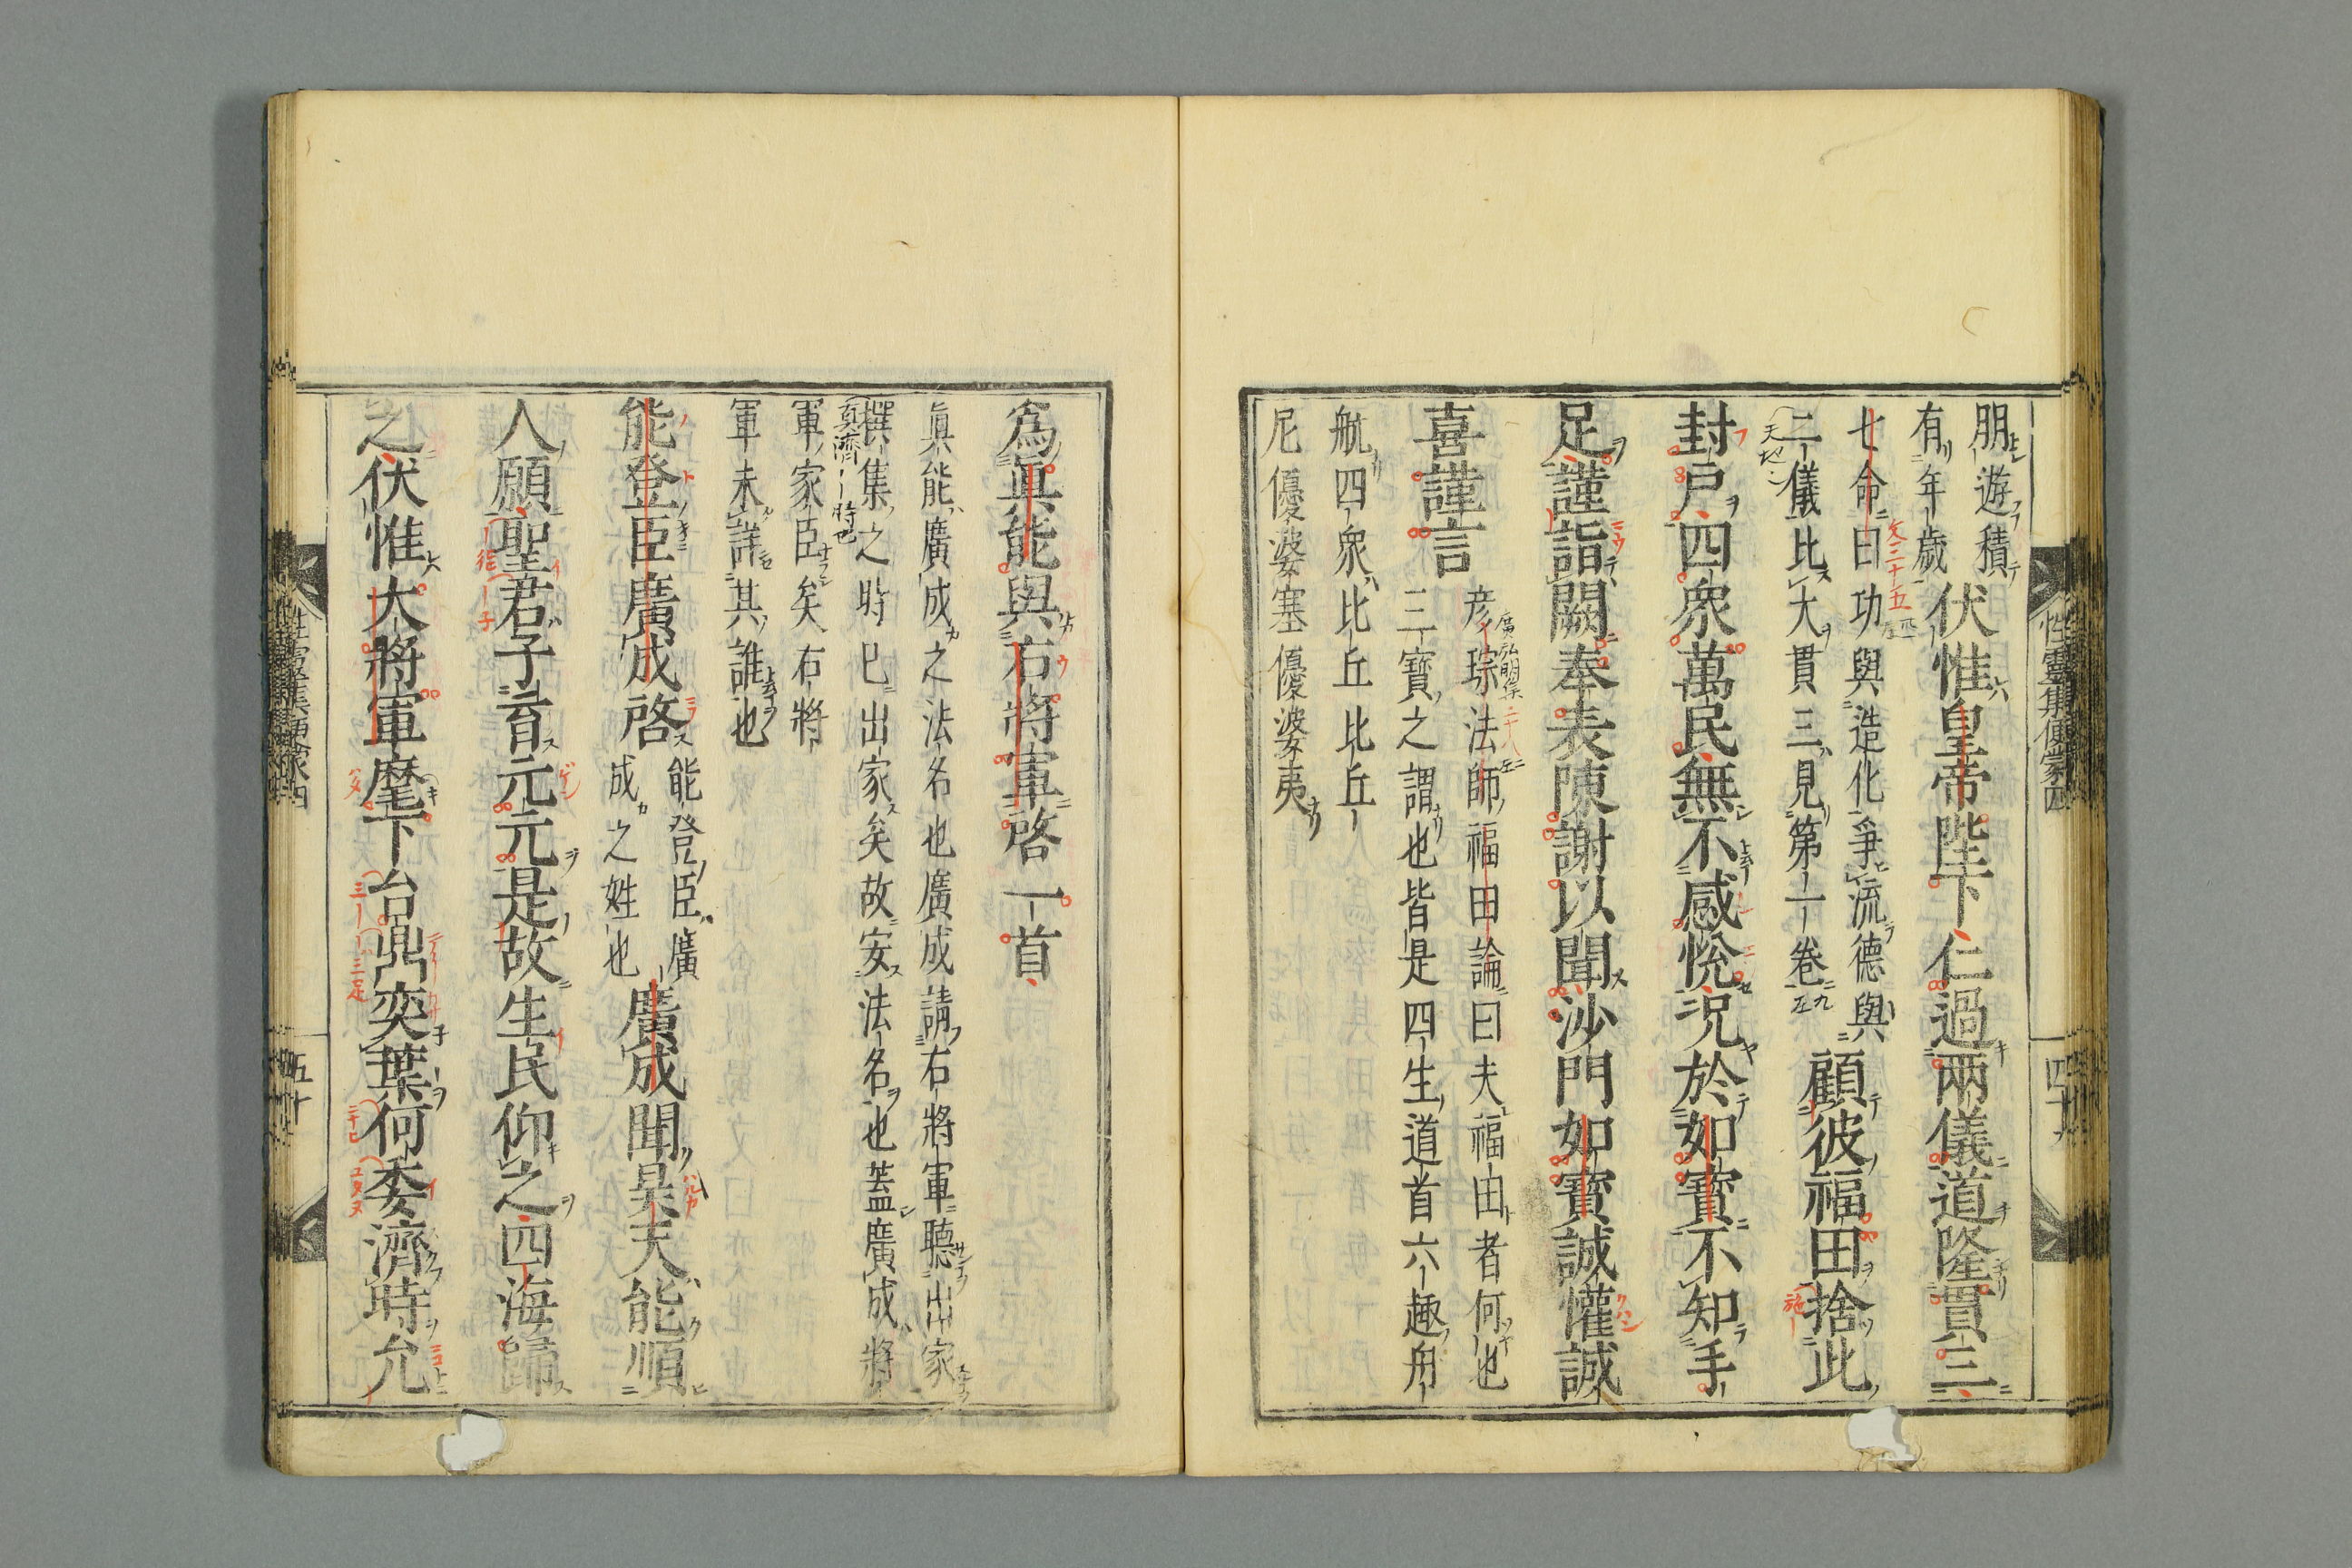 朋遊積
有年歲
伏惟皇帝陛下仁過兩儀道隆貫三
七命曰功與造化爭流德與
二儀比大貫三見第一卷
顧彼福田捨此
封戶四衆萬民無不感悅況於如寶不知手
足謹詣闕奉表陳謝以聞沙門如寶誠懽誠
喜謹言
彦琮法師福田論曰夫福田者何也
三寶之謂也皆是四生道首六趣舟
航四衆比丘比丘
尼優婆塞優婆夷
性靈集便蒙四
四十九
為眞能與右將軍啓一首
眞能廣成之法名也廣成請右將軍聽出家
撰集之時已出家矣故安法名也蓋廣成將
真濟
時也
軍家臣矣右將
軍未詳其誰也
能登臣廣成啓
能登臣廣
成之姓也
廣成聞昊天能順
人願聖君子育元元是故生民仰之四海歸
之伏惟大將軍麾下台鼎奕葉何委濟時允
性靈集便蒙四
五十